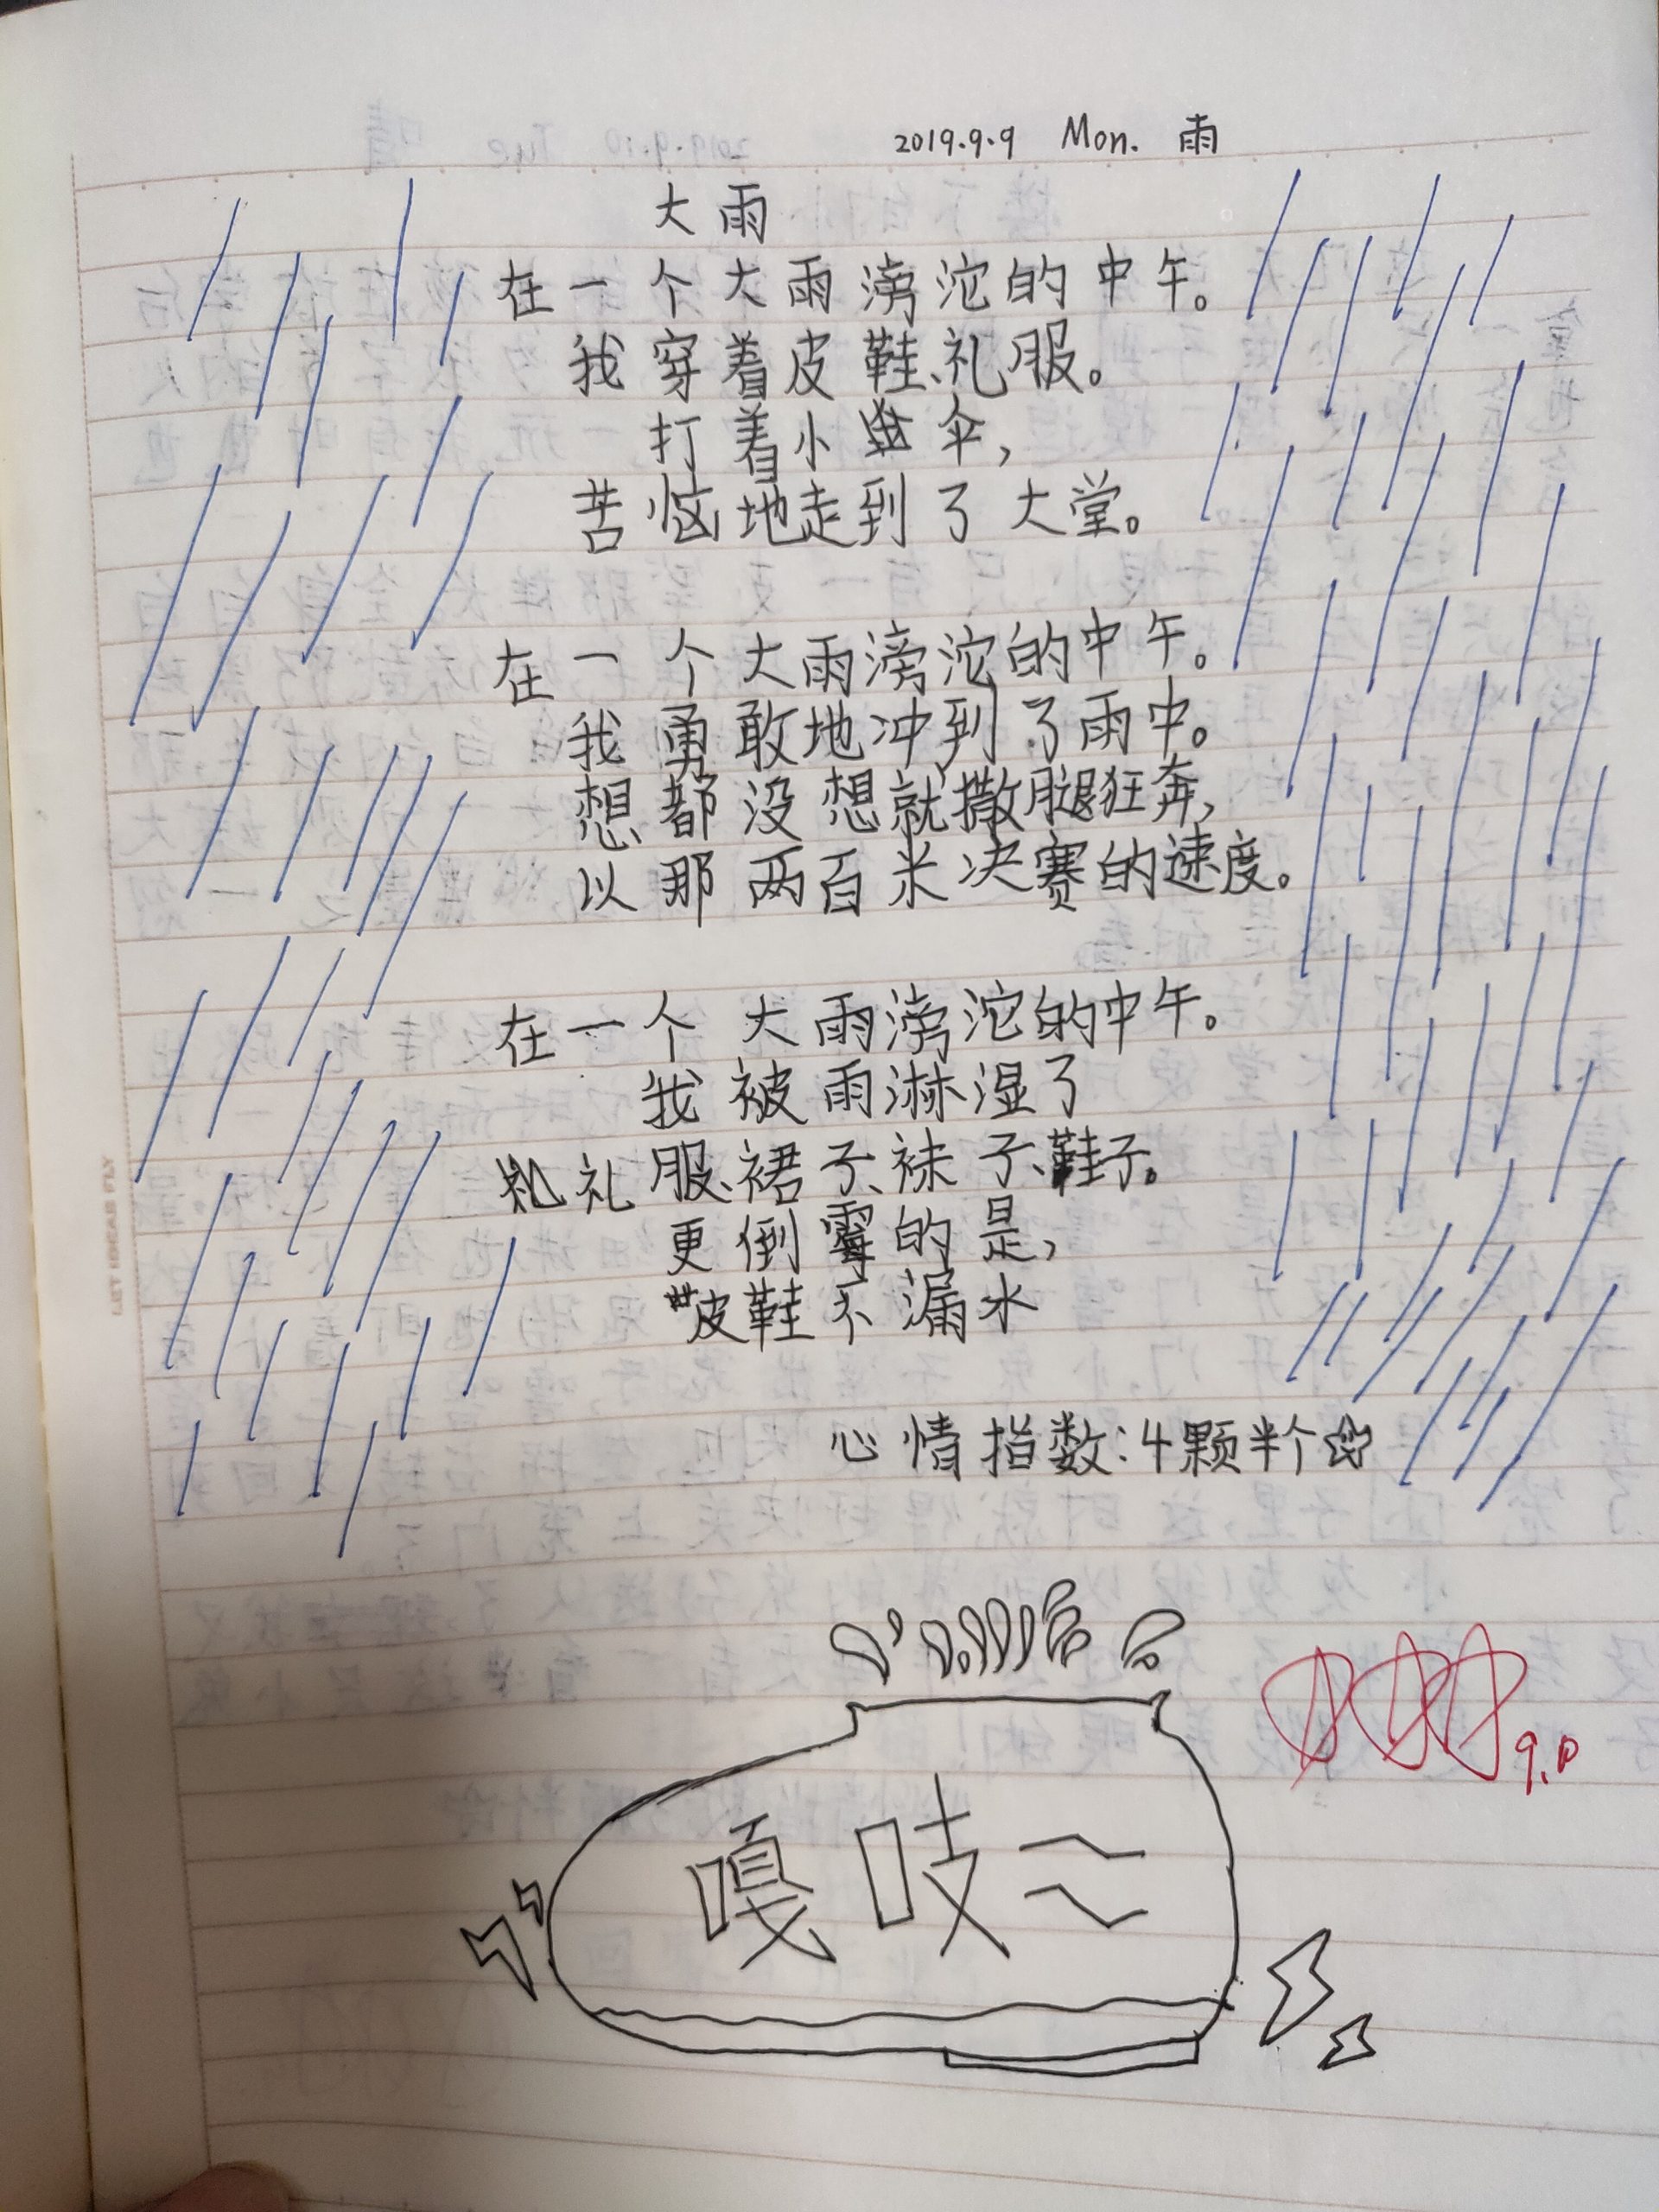 2019.9.9 Mon. 雨
大雨
在一个大雨滂沱的中午。
我穿着皮鞋、礼服。
打着小伞，
苦恼地走到了大堂。
在一个大雨滂沱的中午。
我勇敢地冲到了雨中。
想都没想就撒腿狂奔，
以那两百米决赛的速度。
在一个大雨滂沱的中午。
我被雨淋湿了
礼服、裙子、袜子、鞋子。
更倒霉的是，
皮鞋不漏水
心情指数：4颗半个☆
9.10
嘎吱~~